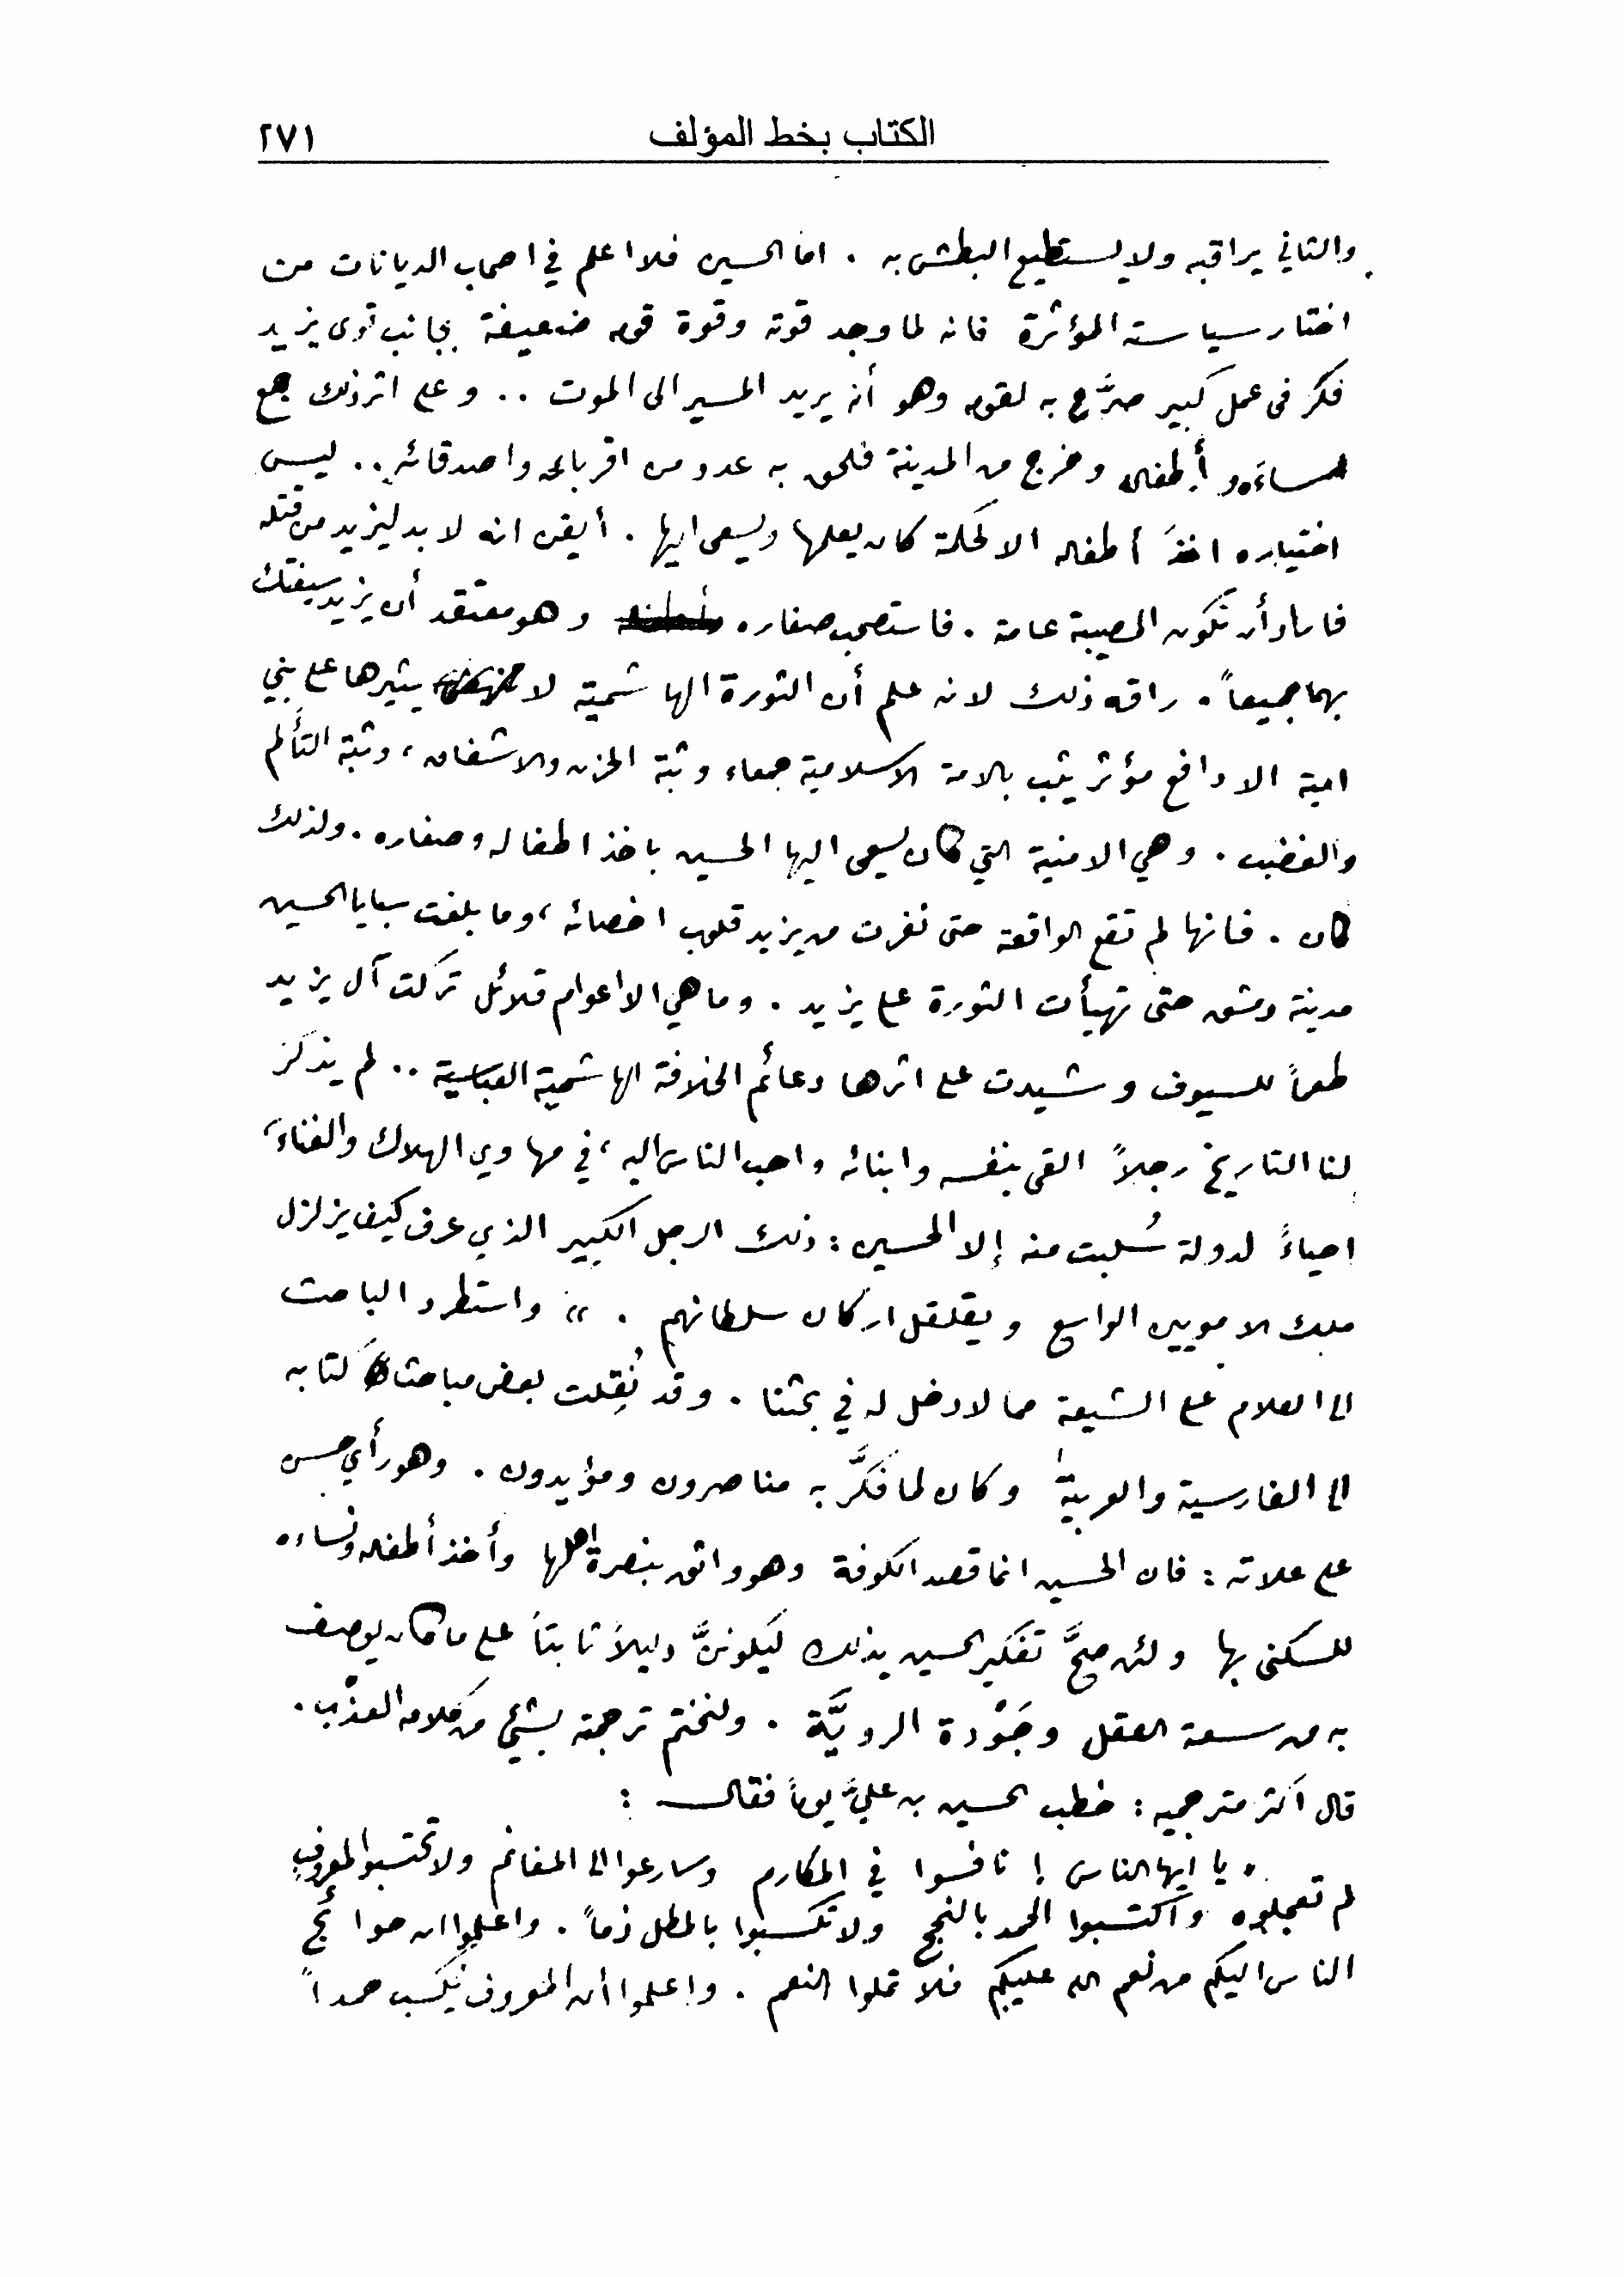 الكتاب بخط المؤلف ٢٧١
والثاني يراقبه ولا يستطيع البطش به . اما الحسين فلا اعلم في اصحاب الديانات من
اختار سياسته المؤثرة فانه لما وجد قوته وقوة قومه ضعيفة بجانب قوى يزيد
فكر في عمل كبير صرَّح به لقومه وهو أنه يريد المسير الى الموت .. وعلى اثر ذلك جمع
نساءَه وأطفاله وخرج من المدينة فلحق به عدد من اقربائه واصدقائه .. ليس
اختياره اخذَ أطفاله الا لحكمة كان يعلمها ويسعى اليها . أيقن انه لا بد ليزيد من قتله
فاراد أن تكون المصيبة عامة . فاستصحب صغاره وهو معتقد أن يزيد سيفتك
بهما جميعاً . راقه ذلك لانه علم أن الثورة الهاشمية لا يثيرها على بني
امية الا دافع مؤثر يثب بالامة الاسلامية جمعاء وثبة الحزن والاشفاق ، وثبة التألم
والغضب . وهي الامنية التي كان يسعى اليها الحسين باخذ اطفاله وصغاره . ولذلك
كان . فانها لم تقع الواقعة حتى نفرت من يزيد قلوب اخصائه ، وما بلغت سبايا الحسين
مدينة دمشق حتى تهيأت الثورة على يزيد . وما هي الا اعوام قلائل تركت آل يزيد
طعماً للسيوف وشيدت على اثرها دعائم الخلافة الهاشمية العباسية .. لم يذكر
لنا التاريخ رجلاً القى بنفسه وابنائه واحب الناس اليه ، في مهاوي الهلاك والفناء ،
احياءً لدولة سُلبت منه إلا الحسين : ذلك الرجل الكبير الذي عرف كيف يزلزل
ملك الامويين الواسع ويقلقل اركان سلطانهم . » واستطرد الباحث
الى الكلام على الشيعة مما لا دخل له في بحثنا . وقد نُقِلت بعض مباحث كتابه
الى الفارسية والعربية وكان لما فكَّر به مناصرون ومؤيدون . وهو رأي حسن
على علاته : فان الحسين انما قصد الكوفة وهو واثق بنصرة اهلها وأخذ أطفاله ونساءه
للسكنى بها ولئن صحَّ تفكير الحسين بذلك ليكوننَّ دليلاً ثابتاً على ما كان يوصف
به من سعة العقل وجَوْدة الرويَّة . ولنختم ترجمته بشيء من كلامه العذْب .
قال اكثر مترجميه : خطب الحسين بن عليّ يوماً فقال :
« يا ايها الناس ! نافسوا في المكارم وسارعوا الى المغانم ولا تحتسبوا المعروف
لم تعجلوه واكتسبوا الحمد بالنجح ولا تكسبوا بالمطل ذماً . واعلموا ان حوائج
الناس اليكم من نعم الله عليكم فلا تملوا النعم . واعلموا أن المعروف يكسب حمداً